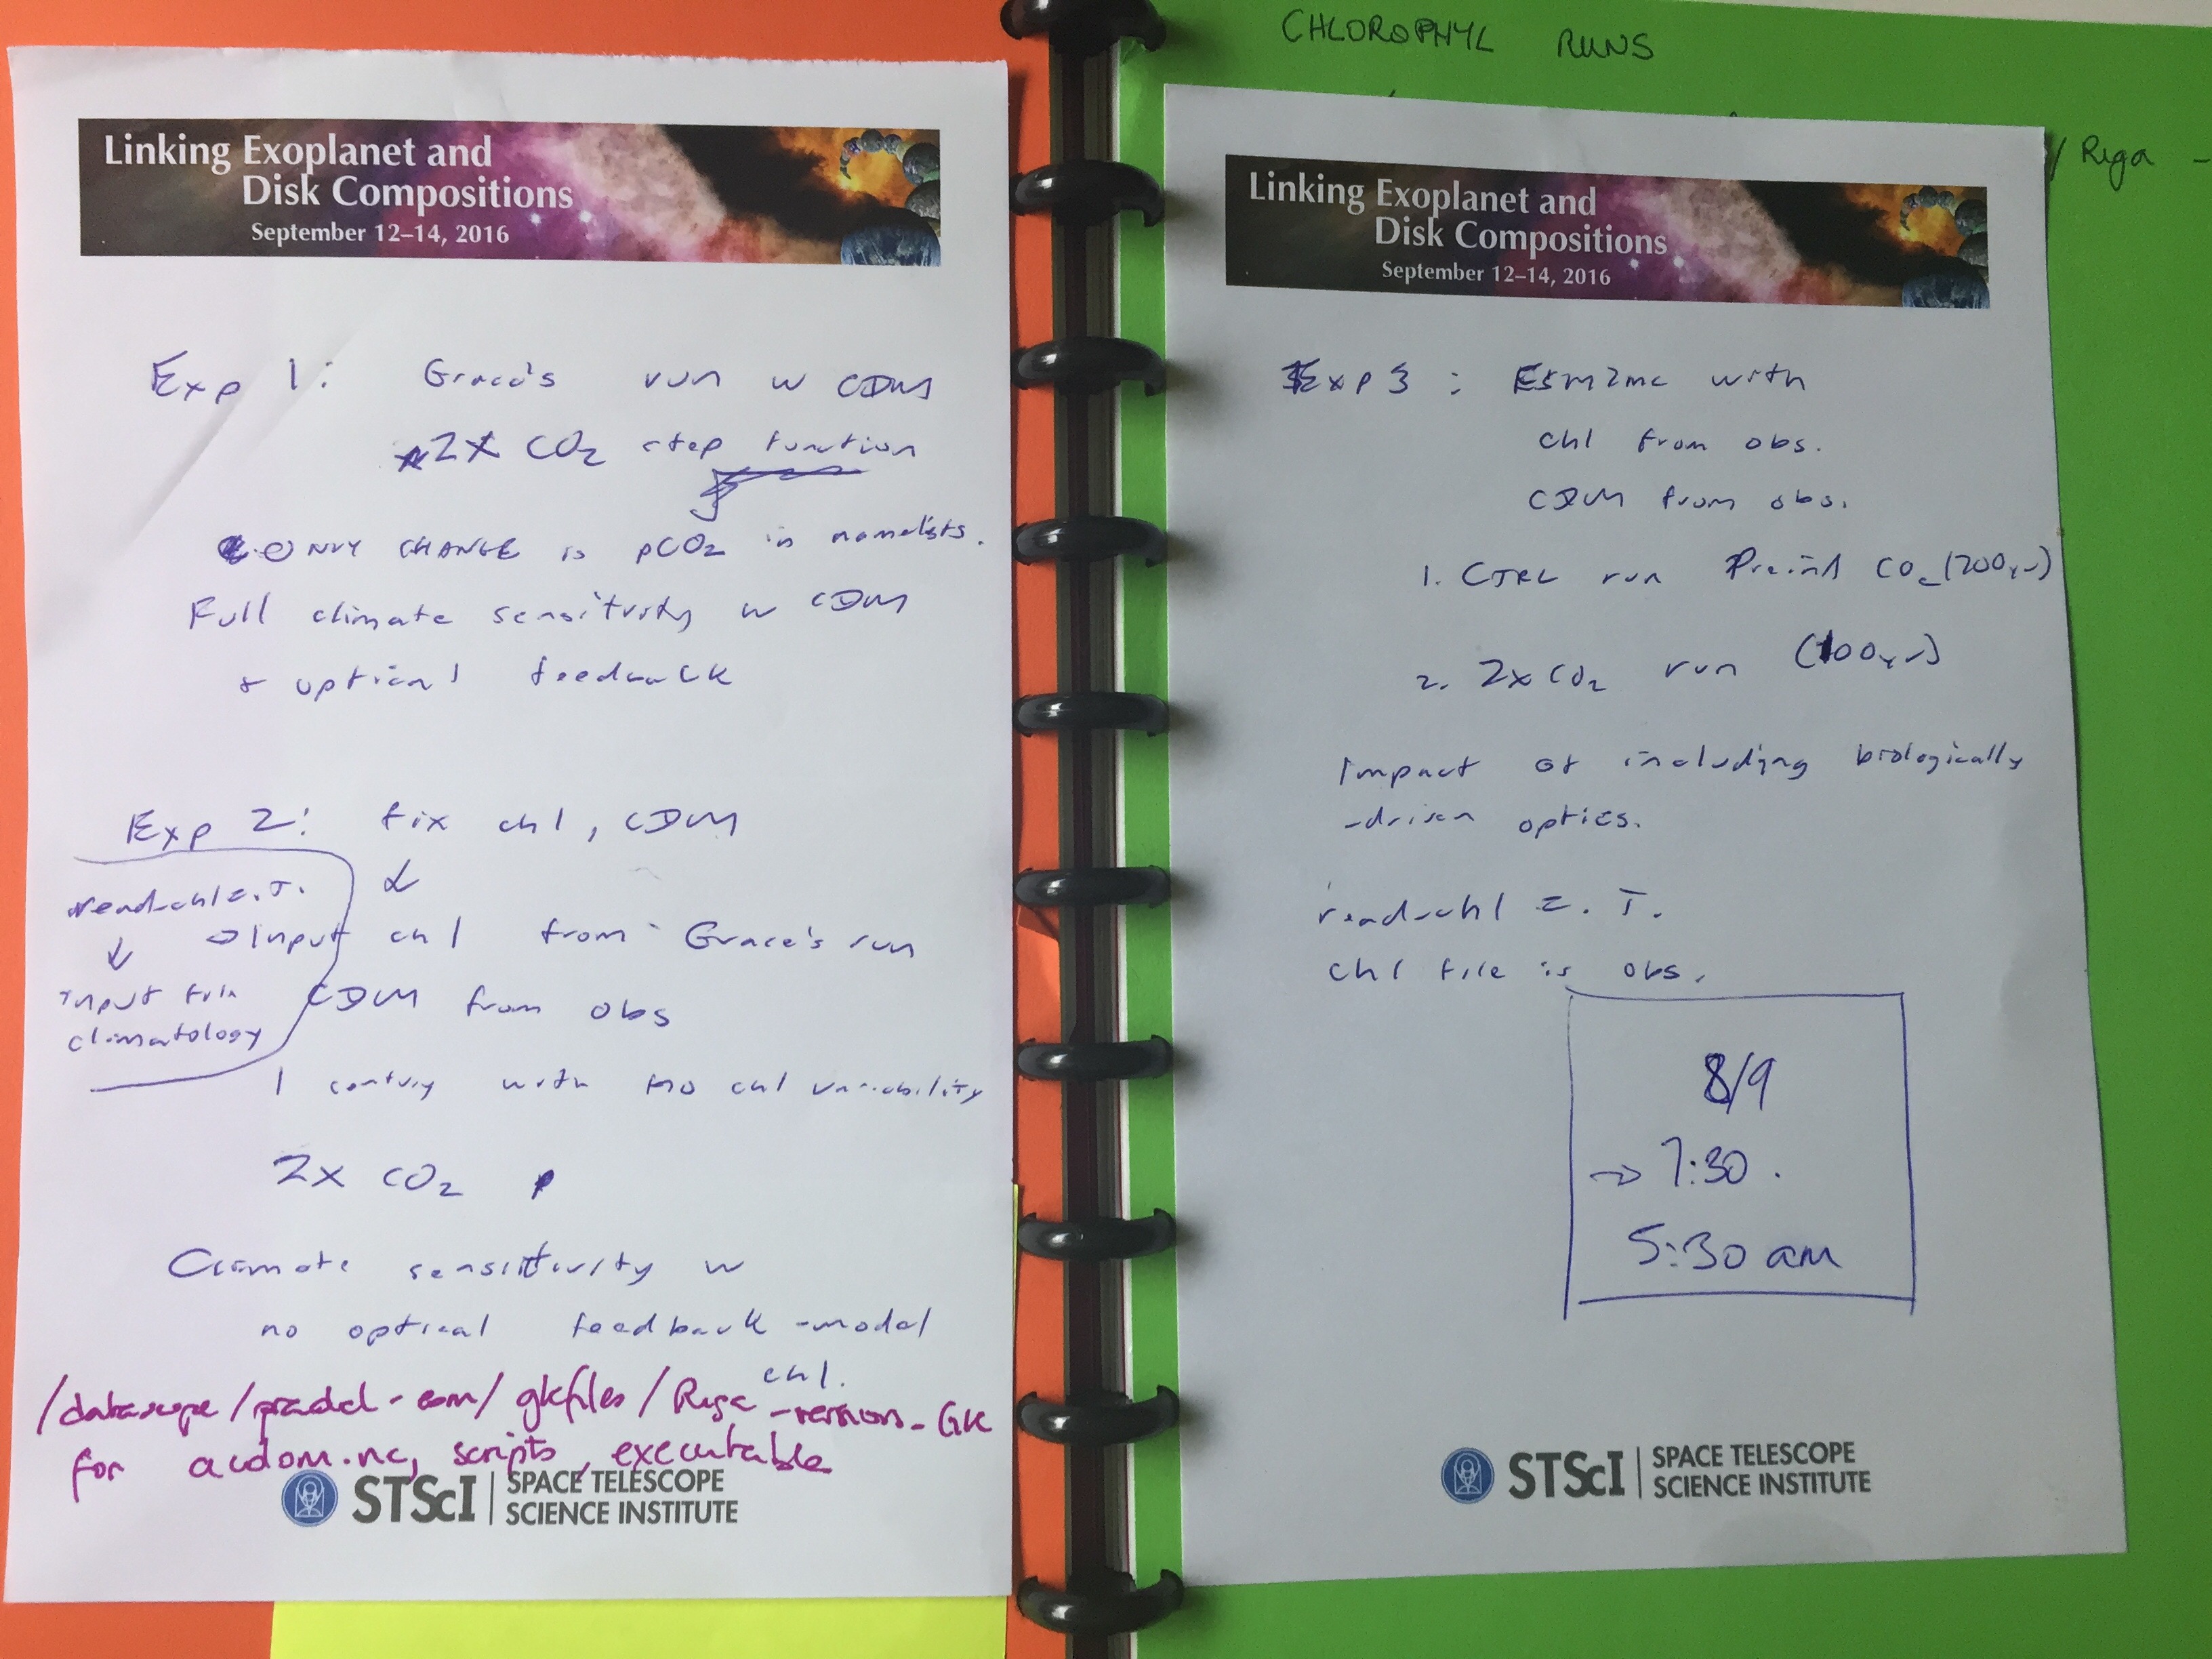 CHLOROPHYL RUNS
/ Riga -
Linking Exoplanet and
Disk Compositions
September 12–14, 2016
Exp 1: Grace's run w CDM
2x CO2 step function
ONLY CHANGE is pCO2 in namelists.
Full climate sensitivity w CDM
+ optical feedback
Exp 2: fix chl, CDM
read_chl = .T.
↓
input from
climatology
↓
→ Input chl from Grace's run
CDM from obs
1 century with no chl variability
2x CO2
Climate sensitivity w
no optical feedback - model
chl.
/datascope/pradal-esm/gkfiles/Riga_version_GK
for acdom.nc, scripts, executable
STScI | SPACE TELESCOPE
SCIENCE INSTITUTE
Linking Exoplanet and
Disk Compositions
September 12–14, 2016
Exp 3 : ESM2mc with
chl from obs.
CDM from obs.
1. CTRL run Preind CO2 (200yr)
2. 2x CO2 run (100yr)
Impact of including biologically
-driven optics.
read_chl = .T.
chl file is obs.
8/9
→ 7:30 .
5:30 am
STScI | SPACE TELESCOPE
SCIENCE INSTITUTE